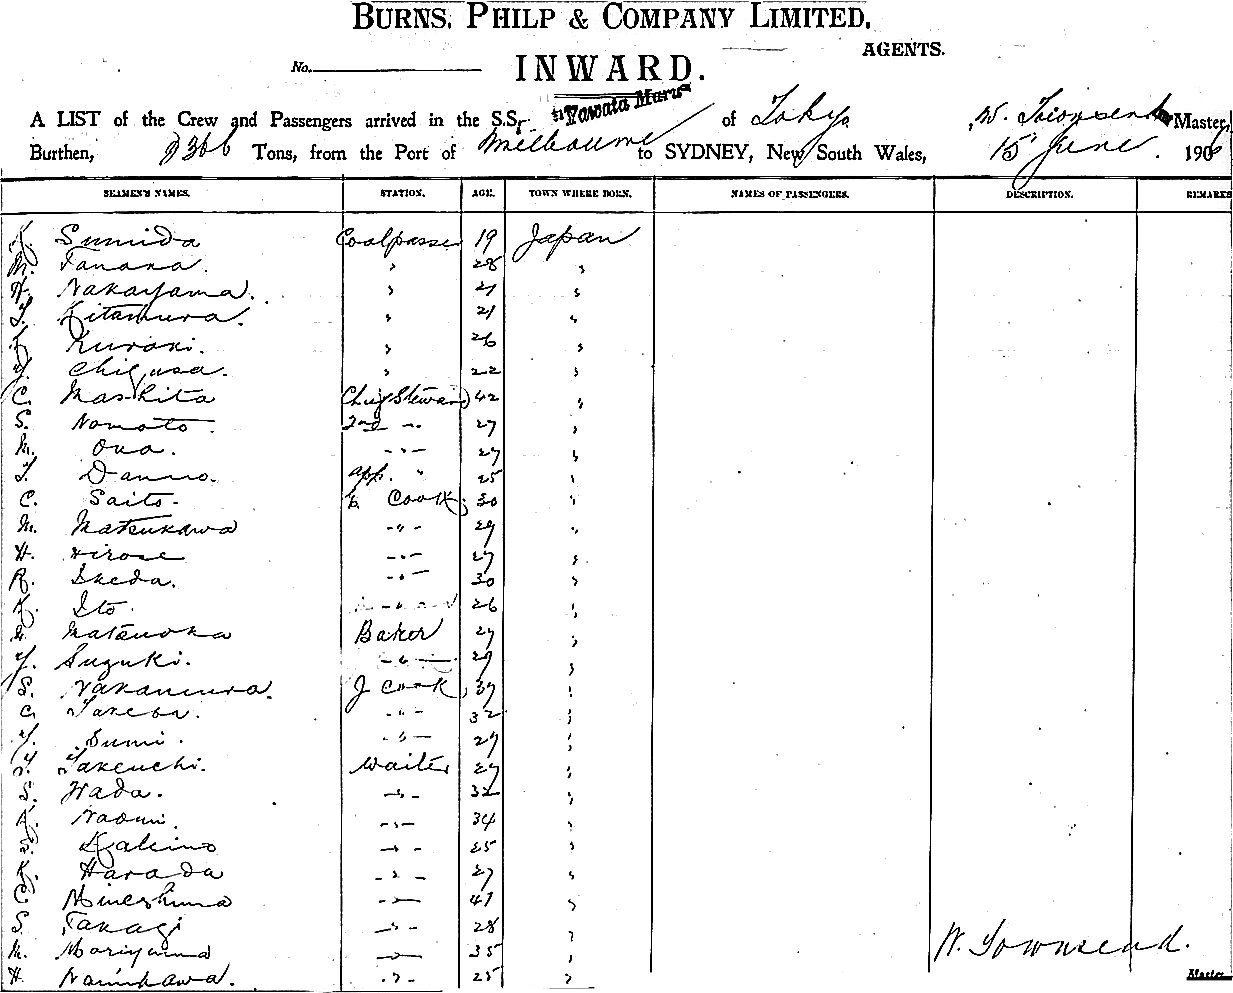 BURNS, PHILP & COMPANY LIMITED,
AGENTS.
No. INWARD.
A LIST of the Crew and Passengers arrived in the S.S. "Yawata Maru" of Tokyo, W. Townsend Master,
Burthen, Tons, from the Port of Melbourne to SYDNEY, New South Wales, 15 June 190
SEAMEN'S NAMES. STATION. AGE. TOWN WHERE BORN. NAMES OF PASSENGERS. DESCRIPTION. REMARKS
Sumida Coalpasser 19 Japan
M. Tanaka. " 28 "
H. Nakayama. " 21 "
T. Kitamura. " 21 "
Kuroki. " 26 "
Y. Chigusa. " 22 "
C. Mashita Chief Steward 42 "
S. Nomoto. 2nd " 27 "
M. Ona. " 27 "
T. Danno. app. " 25 "
C. Saito. Cook 30 "
M. Matsukawa " 29 "
H. Hirose " 27 "
R. Ikeda. " 30 "
K. Ito. " 26 "
Matsuoka Baker 27 "
Y. Suzuki. " 29 "
S. Nakamura. J Cook 37 "
C. Takeba. " 32 "
Y. Sumi. " 27 "
Y. Takeuchi. Waiter 27 "
S. Wada. " 32 "
K. Naomi. " 34 "
S. Kakino " 25 "
K. Harada " 27 "
C. Mineshima " 41 "
S. Takagi " 28 "
M. Moriyama " 35 "
W. Townsend.
H. Namikawa. " 25 "
Master